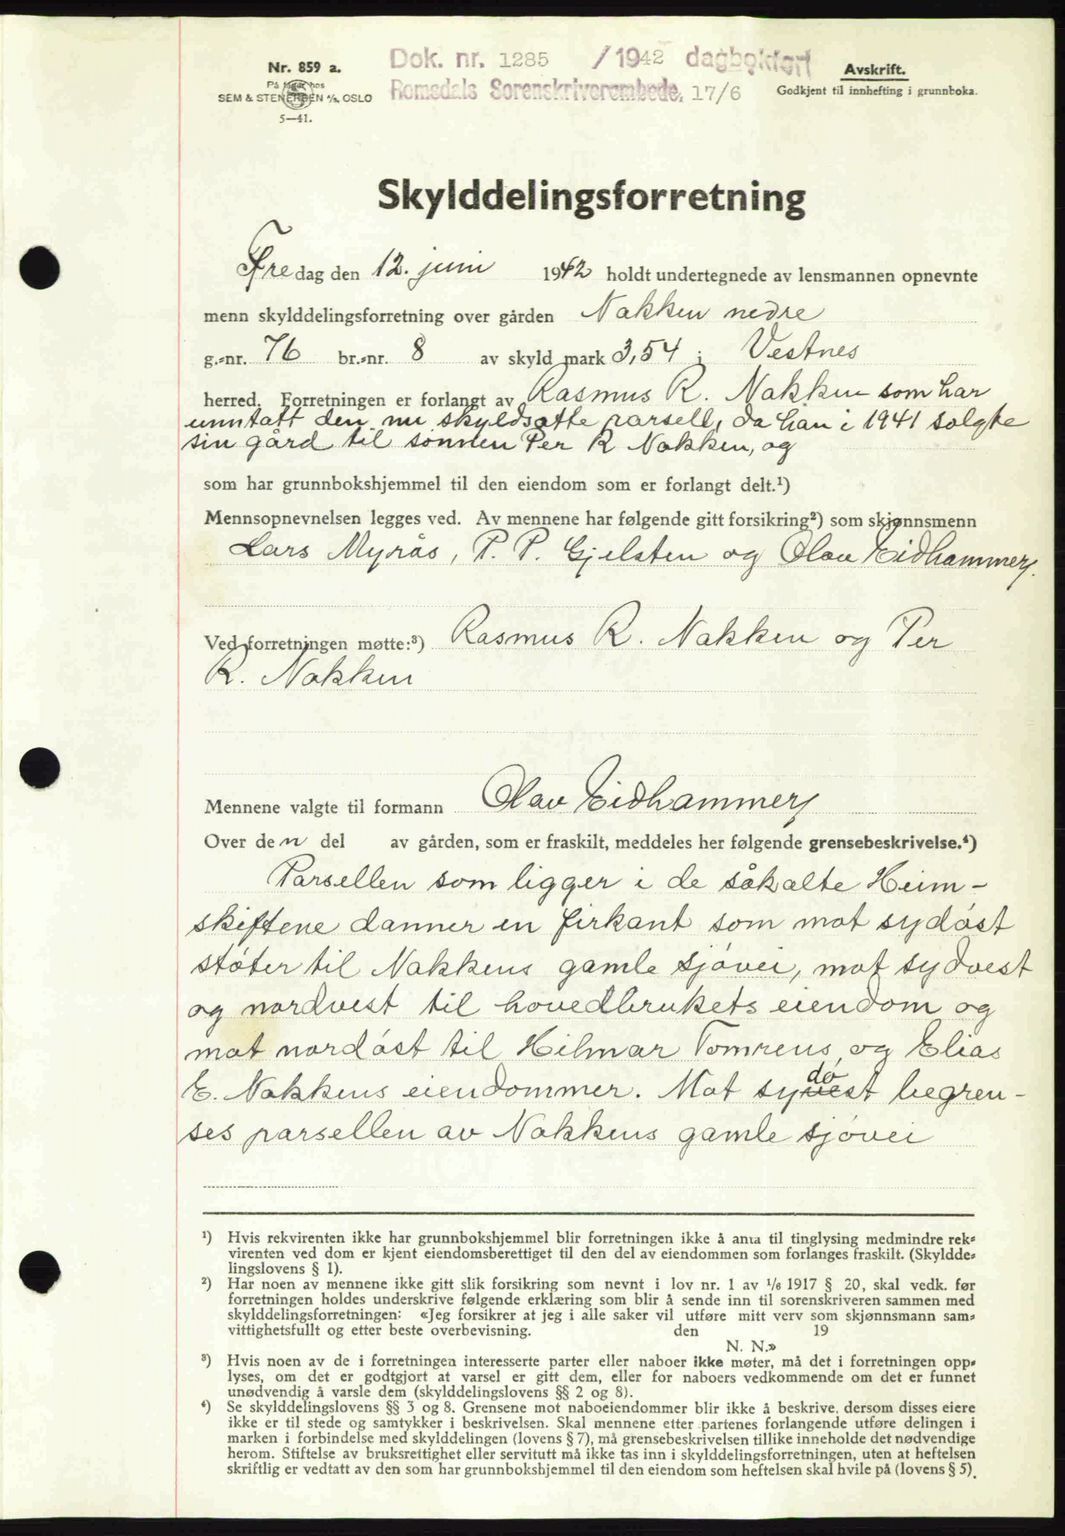 Nr. 859 a.
På lager hos
SEM & STENERSEN A/S, OSLO
5—41.
Dok. nr. 1285 /1942 dagbokført
Romsdals Sorenskriverembede. 17/6
Avskrift.
Godkjent til innhefting i grunnboka.
Skylddelingsforretning
Fredag den 12. juni 1942 holdt undertegnede av lensmannen opnevnte
menn skylddelingsforretning over gården Nakken nedre
g.=nr. 76 br.=nr. 8 av skyld mark 3,54 i Vestnes
herred. Forretningen er forlangt av Rasmus R. Nakken som har
unntatt den nu skyldsatte parsell, da han i 1941 solgte
sin gård til sønnen Per R Nakken, og
som har grunnbokshjemmel til den eiendom som er forlangt delt.¹)
Mennsopnevnelsen legges ved. Av mennene har følgende gitt forsikring²) som skjønnsmenn
Lars Myrås, P. P. Gjelsten og Olav Eidhammer.
Ved forretningen møtte:³) Rasmus R. Nakken og Per
R. Nakken
Mennene valgte til formann Olav Eidhammer
Over den del av gården, som er fraskilt, meddeles her følgende grensebeskrivelse.⁴)
Parsellen som ligger i de såkalte Heim-
skiftene danner en firkant som mot sydøst
støter til Nakkens gamle sjøvei, mot sydvest
og nordvest til hovedbrukets eiendom og
mot nordøst til Hilmar Tomrens og Elias
E. Nakkens eiendommer. Mot sydøst begren-
ses parsellen av Nakkens gamle sjøvei
¹) Hvis rekvirenten ikke har grunnbokshjemmel blir forretningen ikke å anta til tinglysing medmindre rek=
virenten ved dom er kjent eiendomsberettiget til den del av eiendommen som forlanges fraskilt. (Skyldde=
lingslovens § 1).
²) Har noen av mennene ikke gitt slik forsikring som nevnt i lov nr. 1 av 1/6 1917 § 20, skal vedk. før
forretningen holdes underskrive følgende erklæring som blir å sende inn til sorenskriveren sammen med
skylddelingsforretningen: «Jeg forsikrer at jeg i alle saker vil utføre mitt verv som skjønnsmann sam=
vittighetsfullt og etter beste overbevisning. den 19
N. N.»
³) Hvis noen av de i forretningen interesserte parter eller naboer ikke møter, må det i forretningen opp=
lyses, om det er godtgjort at varsel er gitt dem, eller for naboers vedkommende om det er funnet
unødvendig å varsle dem (skylddelingslovens §§ 2 og 8).
⁴) Se skylddelingslovens §§ 3 og 8. Grensene mot naboeiendommer blir ikke å beskrive, dersom disses eiere
ikke er til stede og samtykker i beskrivelsen. Skal mennene etter partenes forlangende utføre delingen i
marken i forbindelse med skylddelingen (lovens § 7), må grensebeskrivelsen tillike inneholde det nødvendige
herom. Stiftelse av bruksrettighet eller servitutt må ikke tas inn i skylddelingsforretningen, uten at heftelsen
skriftlig er vedtatt av den som har grunnbokshjemmel til den eiendom som heftelsen skal hvile på (lovens § 5).